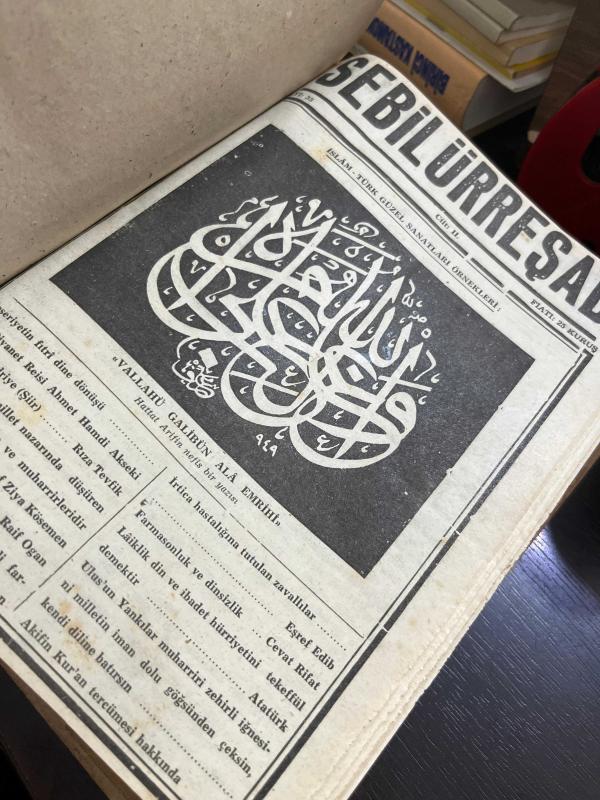 SEBİLÜRREŞAD
Cilt II.
FİATI: 25 KURUŞ
İSLÂM - TÜRK GÜZEL SANATLARI ÖRNEKLERİ:
والله غالب على أمره
٩٤٩
«VALLAHÜ GALİBÜN ALÂ EMRİHİ»
Hattat Arifin nefis bir yazısı
fıtrî dine dönüşü
Reisi Ahmet Hamdi Akseki
(Şiir) ....... Rıza Tevfik
nazarında düşüren
ve muharrirleridir
Ziya Kösemen
Raif Ogan
İrtica hastalığına tutulan zavallılar
Eşref Edib
Farmasonluk ve dinsizlik
Cevat Rifat
Lâiklik din ve ibadet hürriyetini tekeffül
demektir
Atatürk
Ulus'un Yankılar muharriri zehirli iğnesi-
ni milletin iman dolu göğsünden çeksin,
kendi diline batırsın
Akifin Kur'an tercümesi hakkında
BİRİNCİ